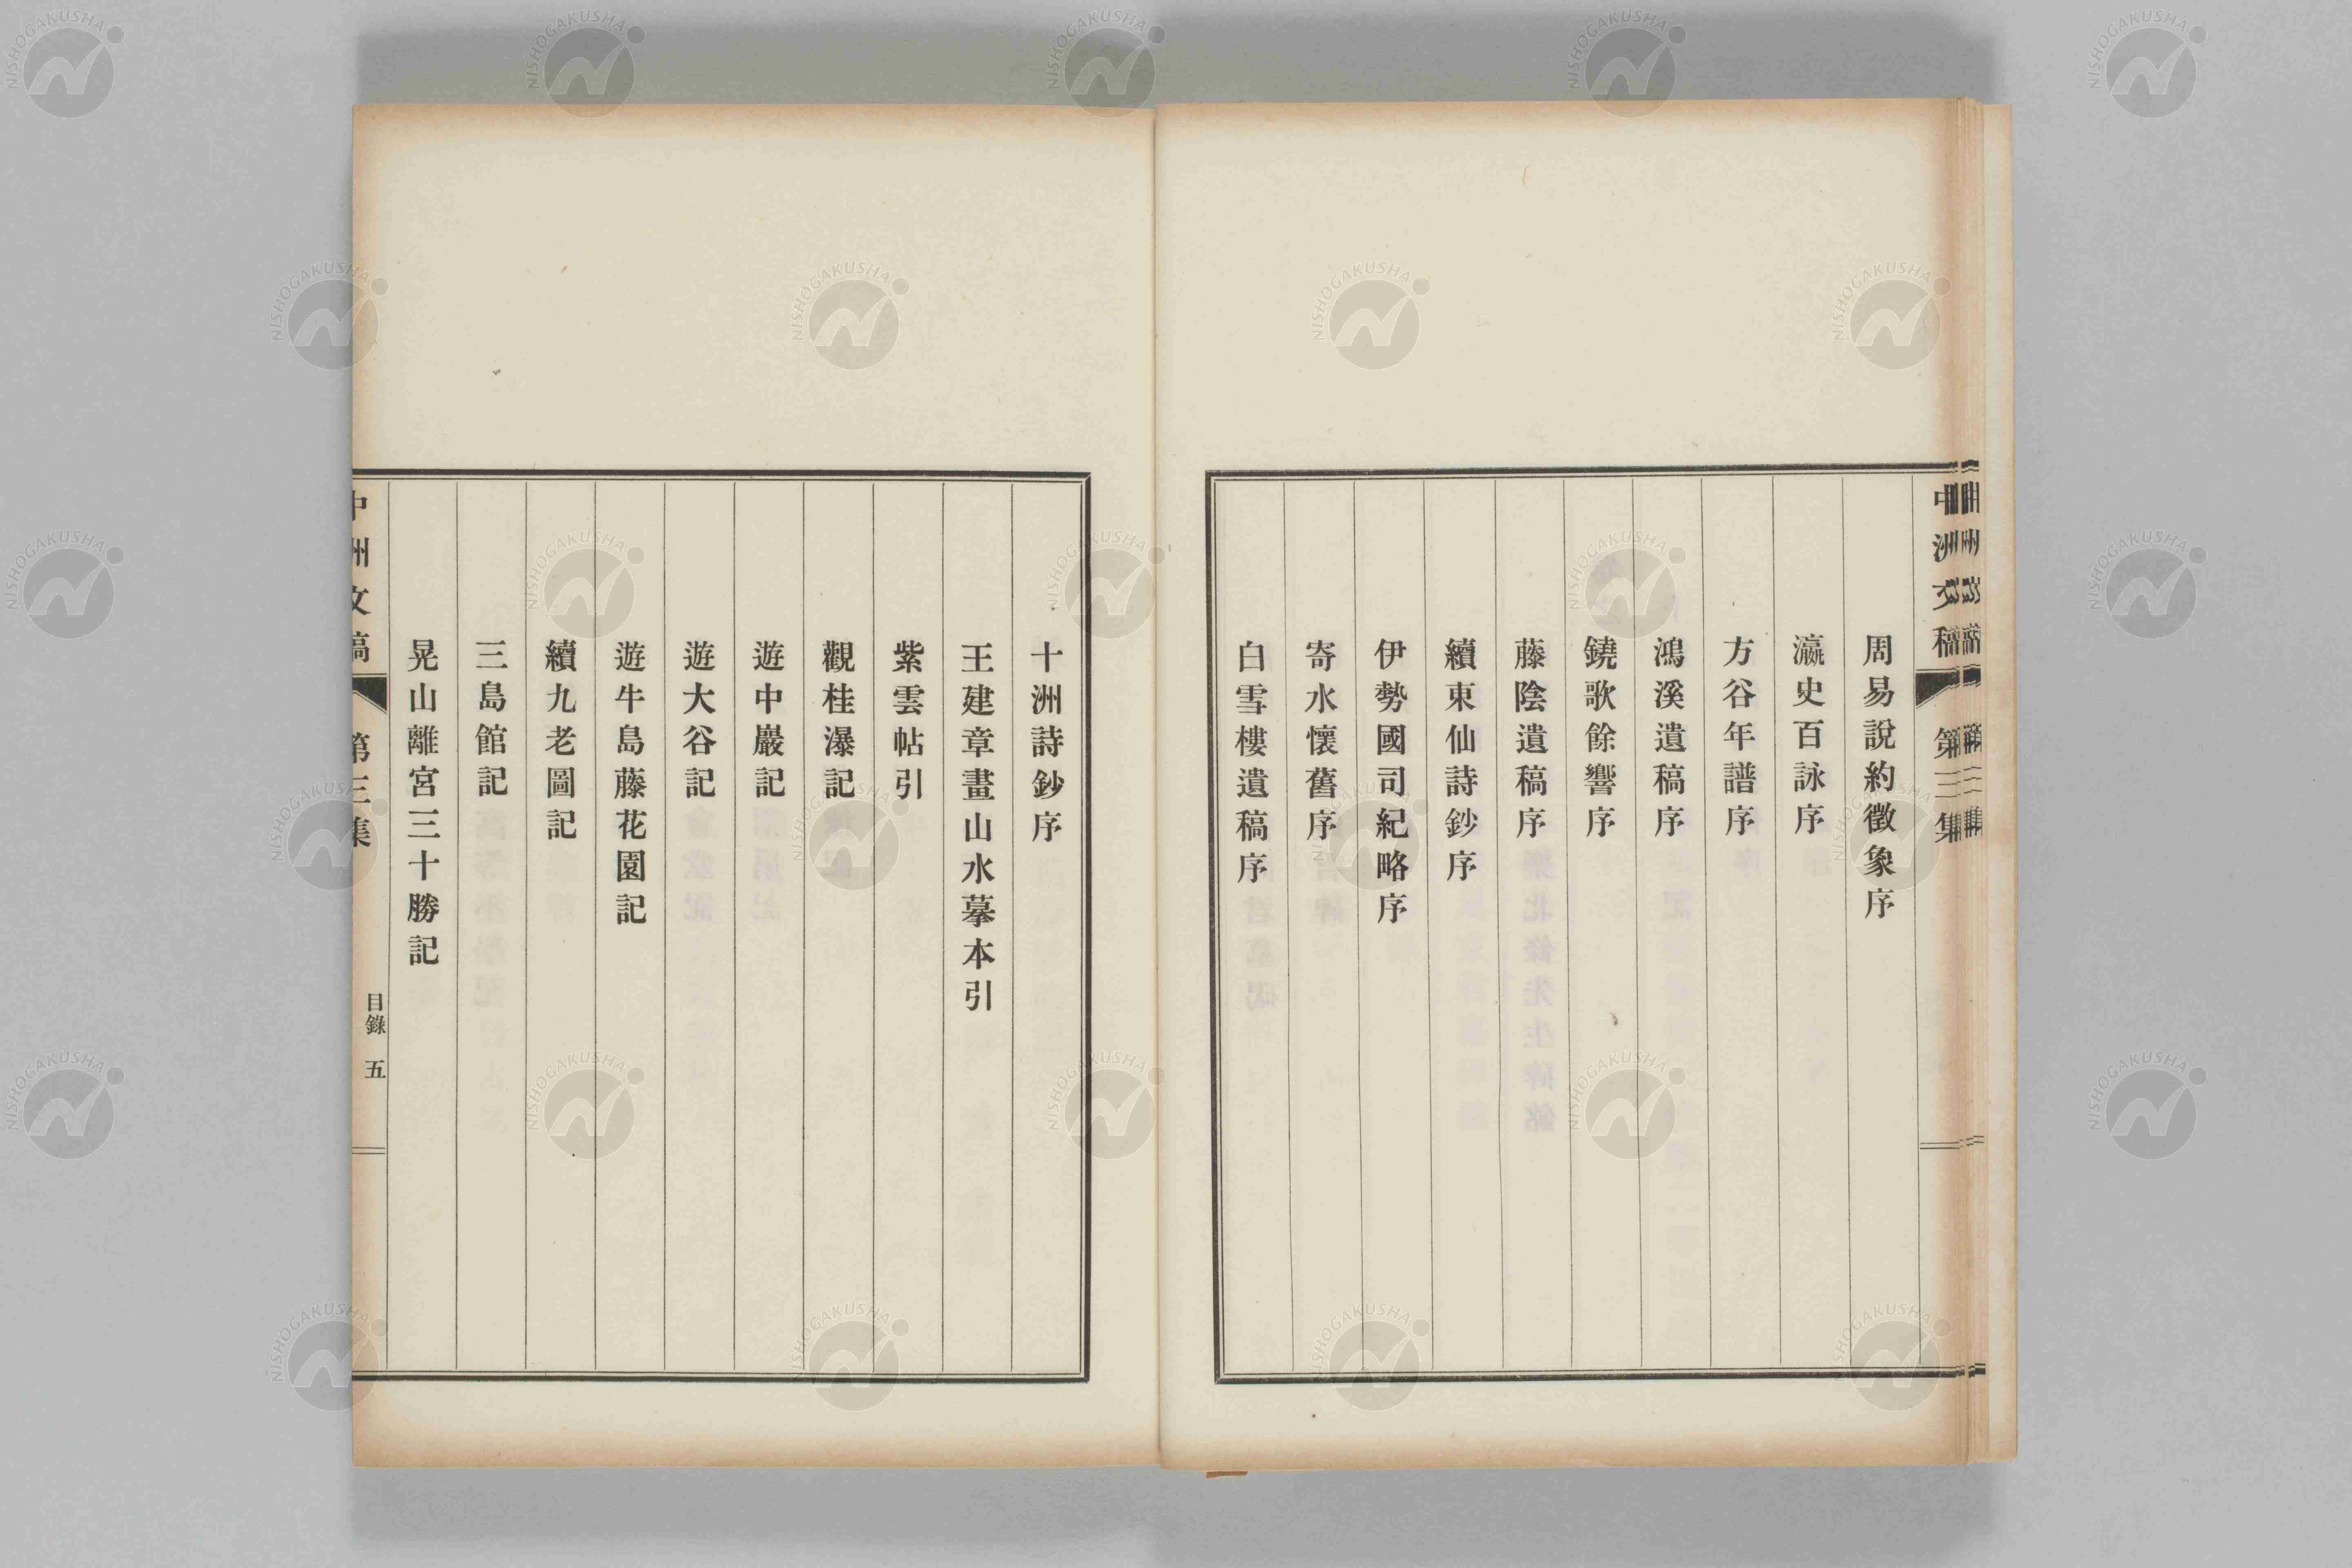 中洲文稿 第三集
周易說約徵象序
瀛史百詠序
方谷年譜序
鴻溪遺稿序
鐃歌餘響序
藤陰遺稿序
續東仙詩鈔序
伊勢國司紀略序
寄水懷舊序
白雪樓遺稿序
十洲詩鈔序
王建章畫山水摹本引
紫雲帖引
觀桂瀑記
遊中巖記
遊大谷記
遊牛島藤花園記
續九老圖記
三島館記
晃山離宮三十勝記
中洲文稿 第三集 目錄 五
NISHOGAKUSHA